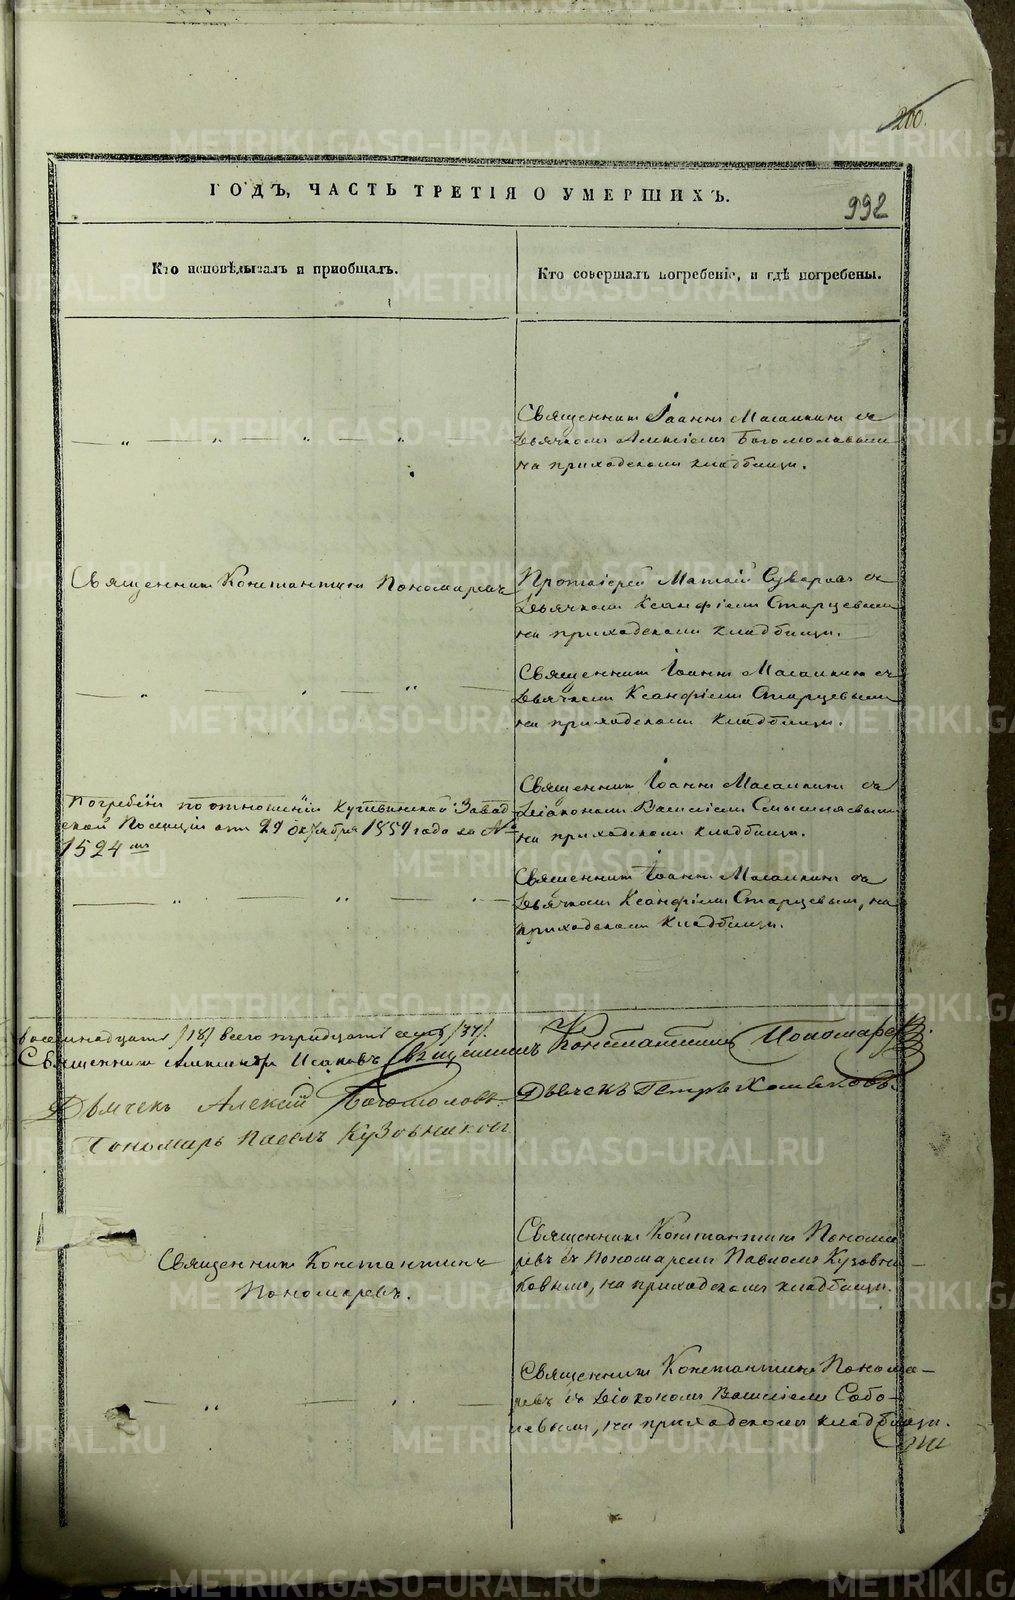 200.
ГОДЪ, ЧАСТЬ ТРЕТІЯ О УМЕРШИХЪ.
992
Кто исповѣдывалъ и приобщалъ.
Кто совершалъ погребеніе, и гдѣ погребены.
Священникъ Іоаннъ Масалкинъ съ
Дьячкомъ Алексіемъ Богомоловымъ
на приходскомъ кладбищѣ.
Священникъ Константинъ Пономаревъ
Протоіерей Матѳій Суворовъ съ
Дьячкомъ Ксанфіемъ Старцевымъ
на приходскомъ кладбищѣ.
Священникъ Іоаннъ Масалкинъ съ
Дьячкомъ Ксанфіемъ Старцевымъ
на приходскомъ кладбищѣ.
Погребенъ по отношенію Кушвинской Завод-
ской Полиціи отъ 29 октября 1859 года за №
1524мъ
Священникъ Іоаннъ Масалкинъ съ
Діакономъ Василіемъ Смышляевымъ
на приходскомъ кладбищѣ.
Священникъ Іоаннъ Масалкинъ съ
Дьячкомъ Ксанфіемъ Старцевымъ, на
приходскомъ кладбищѣ.
восемнадцать /18/ всего тридцать семь /37/.
Священникъ Александръ Исаковъ Священникъ Константинъ Пономаревъ.
Дьячекъ Алексій Богомоловъ.
Дьячекъ Петръ Хомяковъ.
Пономарь Павелъ Кузовниковъ
Священникъ Константинъ
Пономаревъ.
Священникъ Константинъ Понома
ревъ съ Пономаремъ Павломъ Кузовни-
ковымъ, на приходскомъ кладбищѣ.
Священникъ Константинъ Понома-
ревъ съ Діакономъ Василіемъ Собо-
левымъ, на приходскомъ кладбищѣ.
METRIKI.GASO-URAL.RU